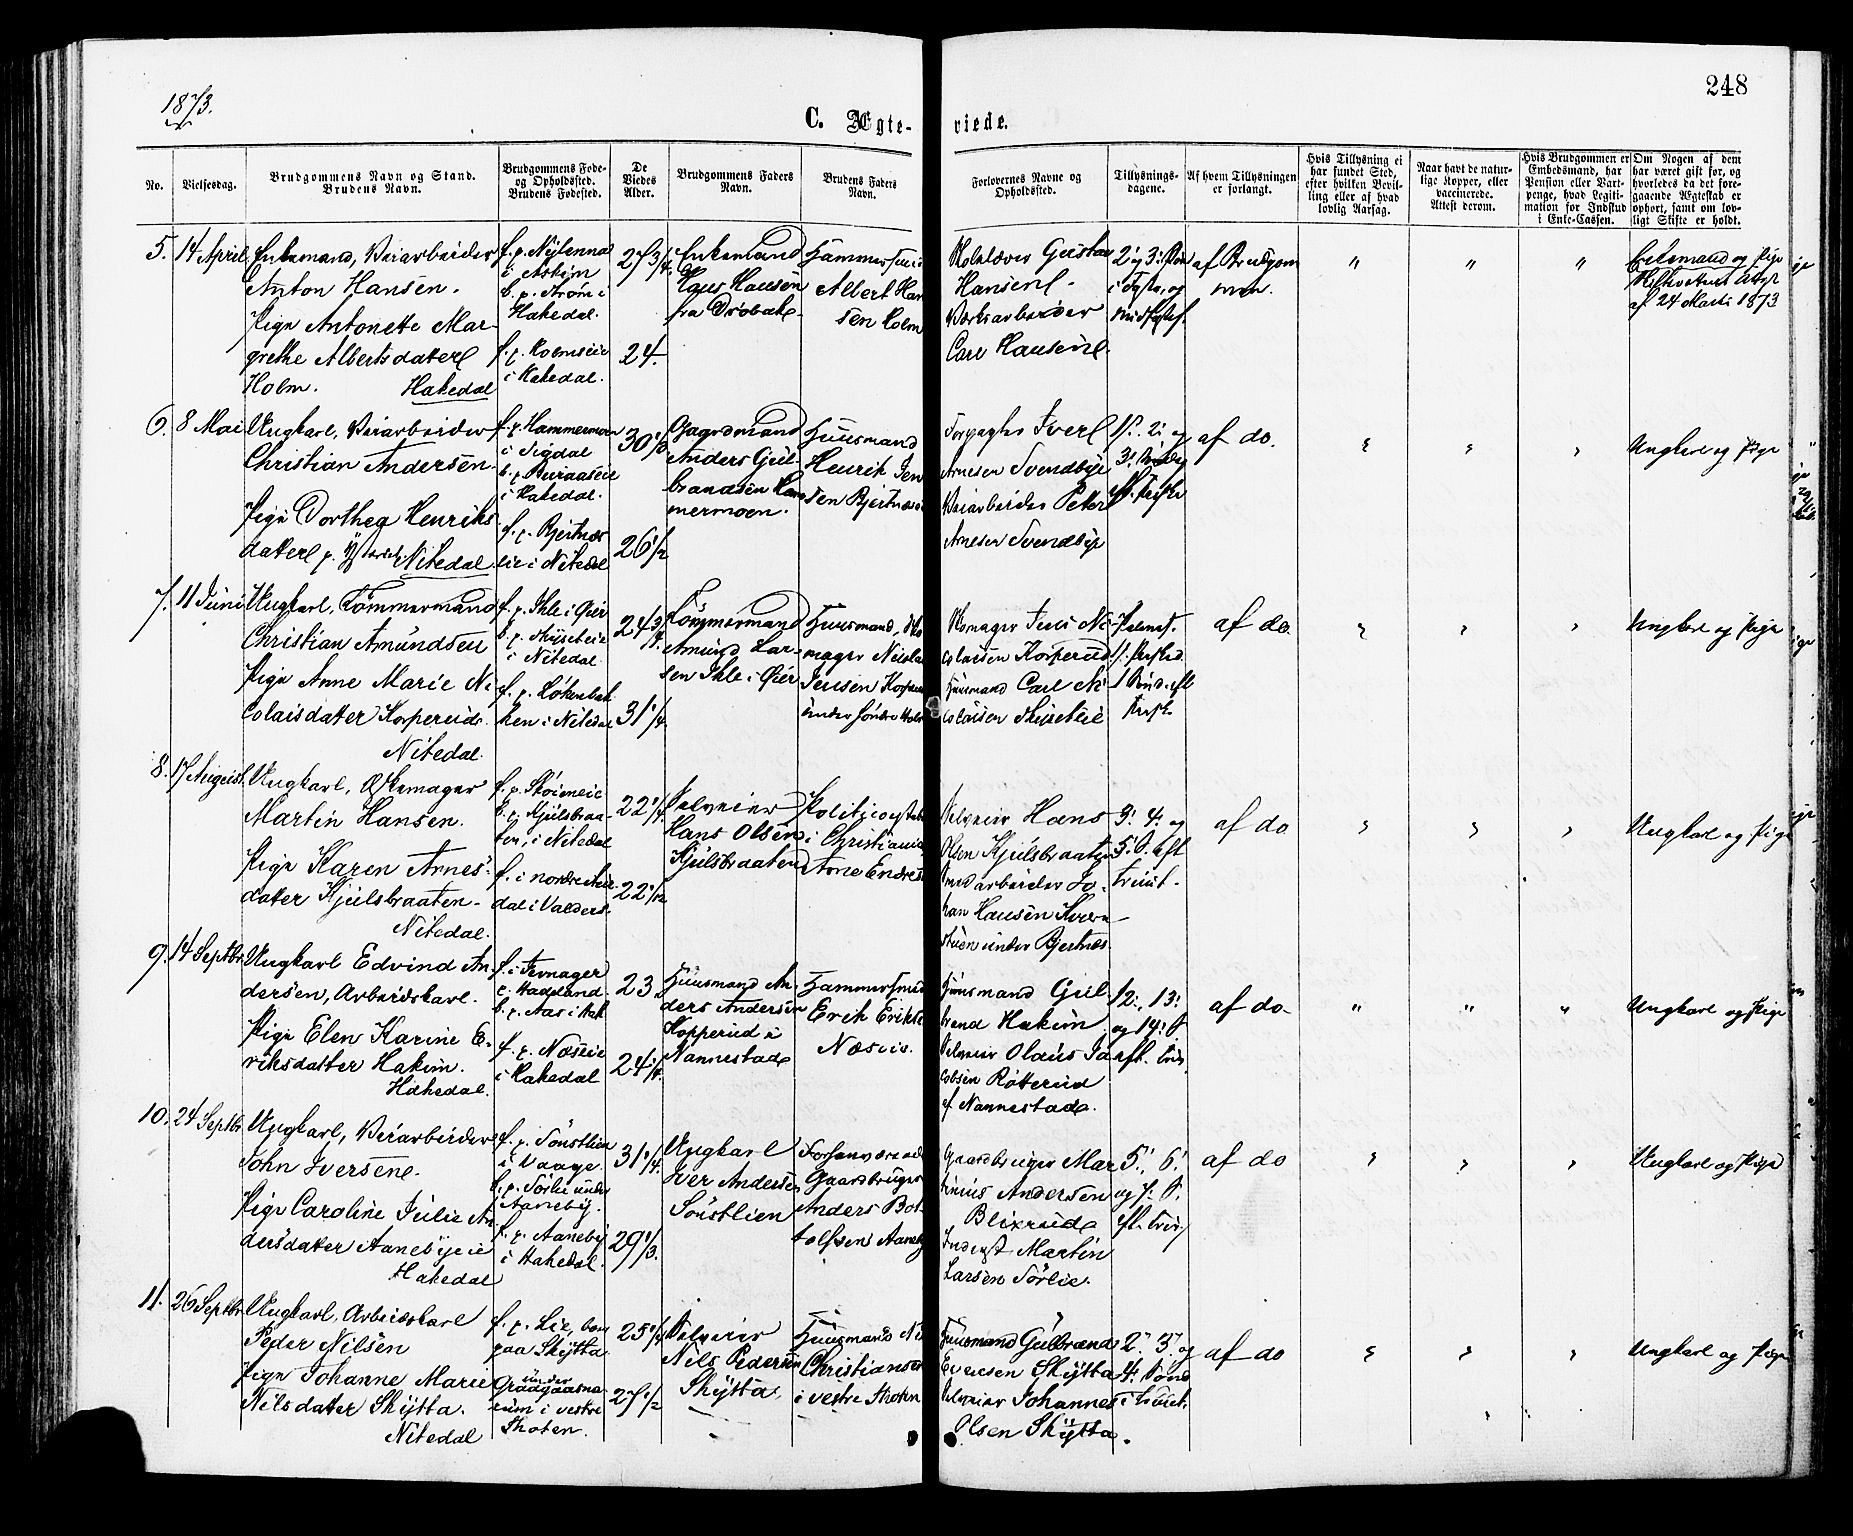 1873.
248
C. Ægte-
viede.
No.
Vielsesdag.
Brudgommens Navn og Stand.
Brudens Navn.
Brudgommens Føde-
og Opholdssted.
Brudens Fødested.
De
Viedes
Alder.
Brudgommens Faders
Navn.
Brudens Faders
Navn.
Forlovernes Navne og
Opholdssted.
Tillysnings-
dagene.
Af hvem Tillysningen
er forlangt.
Hvis Tillysning ei
har fundet Sted,
efter hvilken Bevil-
ling eller af hvad
lovlig Aarsag.
Naar havt de natur-
lige Kopper, eller
vaccinerede.
Attest derom.
Hvis Brudgommen er
Embedsmand, har
Pension eller Vart-
penge, hvad Legiti-
mation for Indskud
i Enke-Cassen.
Om Nogen af dem
har været gift før, og
hvorledes da det fore-
gaaende Ægteskab er
ophørt, samt om lov-
ligt Skifte er holdt.
5.
14 April
Enkemand, Veiarbeider
Anton Hansen.
Pige Antonette Mar-
grethe Albertsdatter
Holm.
Hakedal
i Askim
b. p. Strøm i
Hakedal.
f. p. Holmseie
i Hakedal.
24.
Enkemand
Hans Hansen
fra Drøbak.
Hammersmed
Albert Han
sen Holm
Gustav
Hansen
Værksarbeider
Carl Hansen.
2' og 3'
af Brudgom
men.
"
"
"
Enkemand og Pige
af 24 Marts 1873
6.
8 Mai
Ungkarl, Veiarbeider
Christian Andersen.
Pige Dorthea Henriks
datter
Nitedal.
f. p. Hammermoen
i Sigdal
i Hakedal.
f. p. Bjertnæs
eie i Nitedal
30 1/2
26 1/2
Gaardmand
Anders Gul-
brandsen Ham
mermoen.
Huusmand
Henrik Jen
sen Bjertnæsei
Iver
Arnesen Svendbye
Veiarbeider Peter
Arnesen Svendbye
1', 2' og
af do.
"
"
"
Ungkarl og Pige
7.
11 Juni
Ungkarl, Tømmermand
Christian Amundsen
Pige Anne Marie Ni
colaisdater Korperud.
Nitedal.
f. p. Ihle i Øier
i Nitedal.
f. p. Løkenbak
ken i Nitedal
24 3/4
31 1/4
Tømmermand
Amund Lar-
sen Ihle i Øier
Huusmand, Sko
mager Nicolai
Jensen Korperud
under søndre Holm
Skomager Jens Ni-
colaisen Korperud
Huusmand Carl Ni
colaisen
af do.
"
"
"
Ungkarl og Pige
8.
17 August.
Ungkarl,
Martin Hansen.
Pige Karen Arnes-
dater Kjulsbraaten.
Nitedal.
f. p. Skøieneie
b. p. Kjulsbraa-
ten, i Nitedal
f. i nordre Aur-
dal i Valders.
22 1/4
22 1/12
Selveier
Hans Olsen
Kjulsbraaten
i Christiania
Arne Endres
Selveier Hans
Olsen Kjulsbraaten
han Hansen
stuen under Bjertnæs.
3', 4' og
af do
"
"
"
Ungkarl og Pige
9.
14 Septbr.
Ungkarl Edvind An
dersen, Arbeidskarl.
Pige Elen Karine E-
riksdatter Hakim.
Hakedal.
f. i Jevnager
p. Hadeland.
b. p. Aas i Hak
f. p. Næseie
i Hakedal
23
24 1/4
Huusmand An
ders Andersen
Kopperud i
Nannestad
Hammersmed
Erik Erikse
Næseie.
Huusmand Gul
brand Hakim
Selveier Olaus Ja
cobsen Røtterud
af Nannestad.
12', 13'
og 14' S.
af do.
"
"
"
Ungkarl og Pige
10.
24 Septbr.
Ungkarl, Veiarbeider
John Iversen.
Pige Caroline Julie An
dersdater Aanebyeie
Hakedal
f. p. Sønstlien
i Vaage.
b. p. Sørlie under
Aaneby.
f. p. Aaneby
i Hakedal.
31 1/4
29 1/3
Ungkarl
Iver Andersen
Sønstlien
Forhenværende
Gaardbruger
Anders Bot
tolfsen Aaneby
Gaardbruger Mar
tinius Andersen
Blixrud
Inderst Martin
Larsen Sørlie.
5', 6'
og 7' S.
af do
"
"
"
Ungkarl og Pige
11.
26 Septbr.
Ungkarl, Arbeidskarl
Peder Nilsen
Pige Johanne Marie
Nilsdater Skytta.
Nitedal
f. p. Lie, boer
paa Skytta
under
i vestre
Thoten.
25 1/4
Selveier
Nils Pedersen
Skytta
Huusmand Ni
Christiansen
i vestre Thoten
Huusmand Gulbrand
Evensen Skytta
Selveier Johannes
Olsen Skytta.
2', 3' og
af do
"
"
"
Ungkarl og Pige